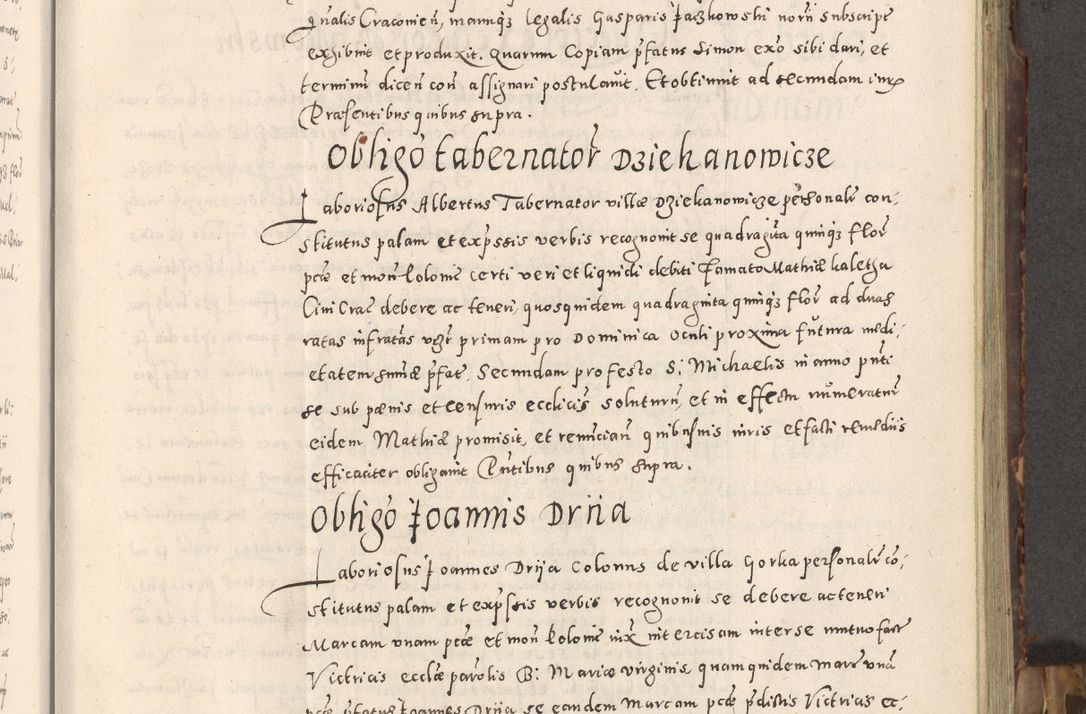 Qnalis Cracovien, manuqz legalis Gasparis Jaczkowski norij subscript
exhibuit et produxit. Quarum Copiam pfatus Simon exo sibi dari, et
terminu dicen con assignari postulavit. Et obtinuit ad secundam iurx
Praesentibus quibus supra.
Obligo tabernator Dziekanowicze
Laboriosus Albertus Tabernator villae Dziekanowicze personalr con-
stitutus palam et expssis verbis recognovit se quadraginta quinqz flor
pcae et mon Polonic certi veri et liquidi debiti famato Mathiae Kaletza
Civi Crac debere ac teneri, quosquidem quadraginta quinqz flor ad duas
ratas infratas vgr primam pro Dominica Oculi proxima futura medi-
etatem sumae pfat. Secundam pro festo S: Michaelis in anno pnti
se sub poenis et censuris ecclicis soluturu, et in effectu numeraturu
eidem Mathiae promisit, et renuncian quibusuis iuris et facti remediis
efficaciter obligavit Pntibus quibus supra.
Obligo Joannis Driia
Laboriosus Joannes Drija Colonus de villa Gorka personalr co-
stitutus palam et expssis verbis recognovit se debere ac teneri
Marcam unam pcae et mon Polonic iux intercisam inter se mutuo fact
Victricis ecclae parolis B: Mariae virginis, quamquidem marc una
pcae pfatus Joannes Driia se eandem Marcam pcae pdictis Victricis ec-